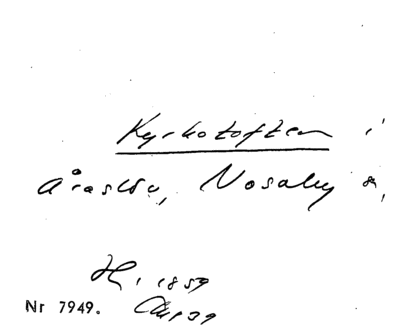 Kyrkotoften i
Åraslöv, Nosaby
1859
Nr 7949.